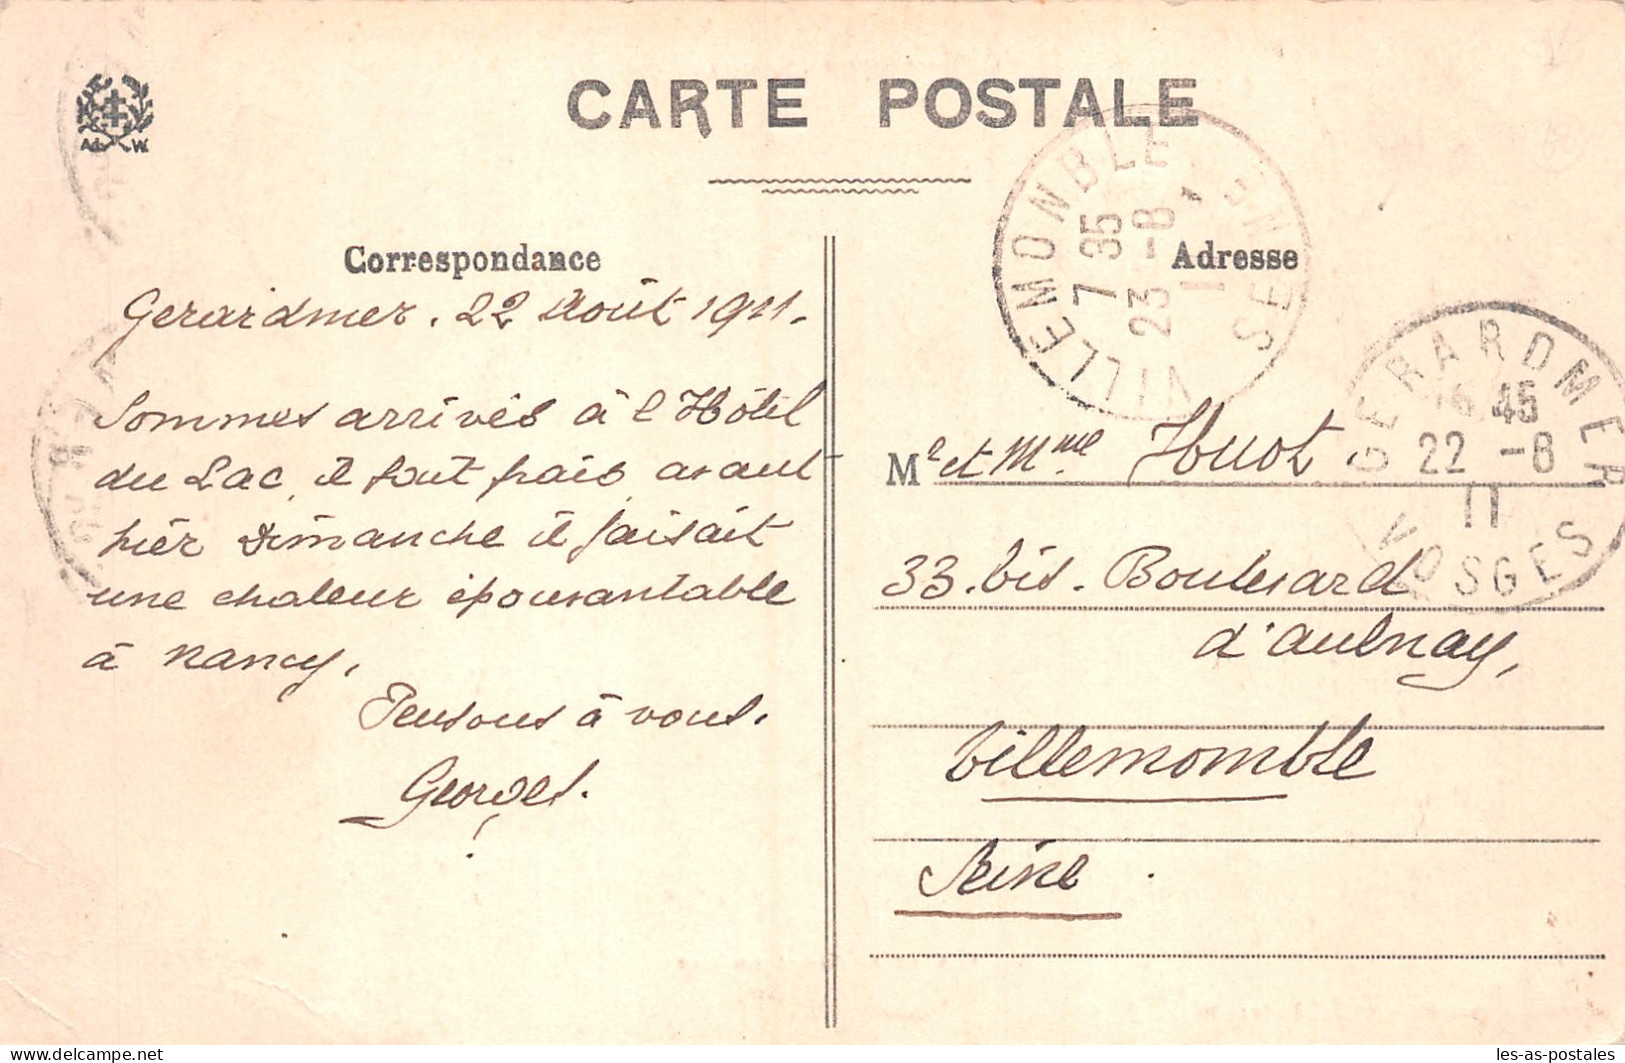 CARTE POSTALE
Ad. W.
Correspondance
Gerardmer. 22 Août 1911.
Sommes arrivés à l'Hôtel
du Lac, il fait frais avant
hier Dimanche il faisait
une chaleur épouvantable
à Nancy.
Pensons à vous.
Georges.
Adresse
VILLEMONBLE SEINE
7 35
23 -8
11
GERARDMER VOSGES
16 45
22 -8
11
Mr et Mme Huot.
33. bis. Boulevard
d'Aulnay,
Villemomble
Seine.
les-as-postales